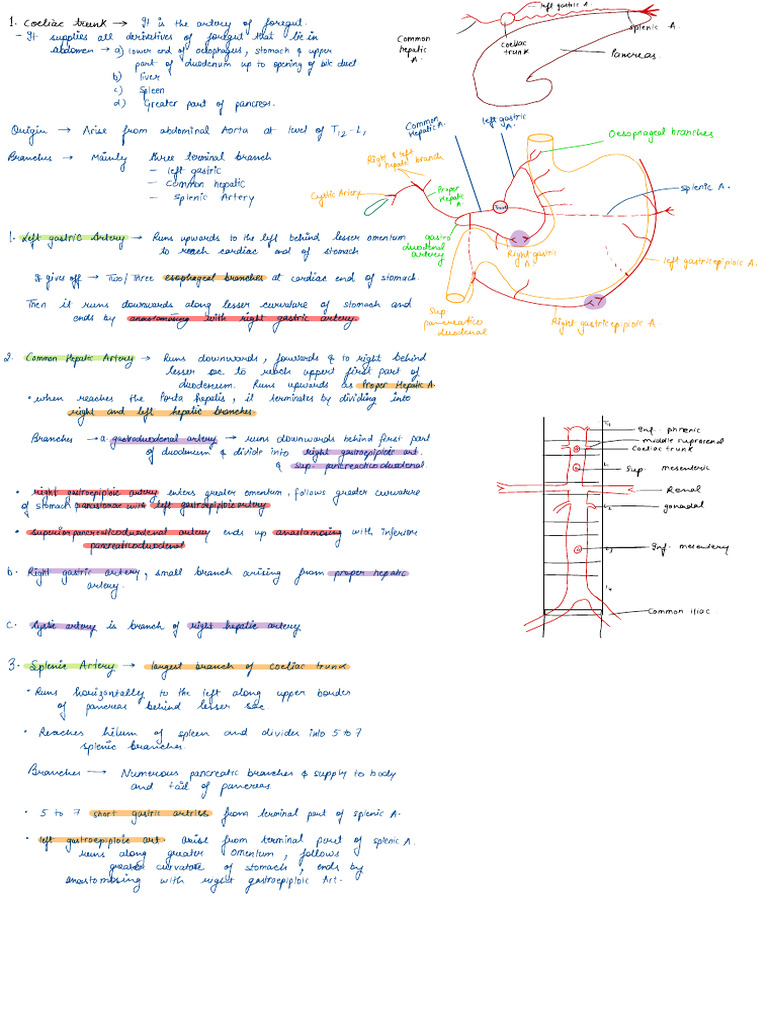 1. Coeliac trunk → It is the artery of foregut.
- It supplies all derivatives of foregut that lie in
abdomen → a) lower end of oesophagus, stomach & upper
part of duodenum up to opening of bile duct
b) liver
c) Spleen
d) Greater part of pancreas.
Origin → Arise from abdominal Aorta at level of T12-L1
Branches → Mainly three terminal branch
- left gastric
- Common hepatic
- Splenic Artery
1. Left gastric Artery → Runs upwards to the left behind lesser omentum
to reach cardiac end of stomach
It gives off → Two/Three esophageal branches at cardiac end of stomach.
Then it runs downwards along lesser curvature of stomach and
ends by anastamosing with right gastric artery.
2. Common Hepatic Artery → Runs downwards, forwards & to right behind
lesser sac to reach uppert first part of
duodenum. Runs upwards as Proper Hepatic A.
• when reaches the Porta hepatis, it terminates by dividing into
right and left hepatic branches
Branches → a. gastroduodenal artery → runs downwards behind first part
of duodenum & divide into right gastroepiploic art.
& Sup. pancreaticoduodenal
• right gastroepiploic artery enters greater omentum, follows greater curvature
of stomach anastamose with left gastroepiploic artery
• Superiorpancreaticoduodenal artery ends up anastamosing with inferior
pancreaticoduodenal
b. Right gastric artery, small branch arising from proper hepatic
artery.
c. Cystic artery is branch of right hepatic artery
3. Splenic Artery → largest branch of coeliac trunk
• Runs horizontally to the left along upper border
of pancreas behind lesser sac.
• Reaches hilum of spleen and divides into 5 to 7
splenic branches.
Branches → Numerous pancreatic branches & supply to body
and tail of pancreas
• 5 to 7 short gastric artries from terminal part of splenic A.
• left gastroepiploic art arise from terminal part of splenic A.
runs along greater omentum, follows
greater curvature of stomach, ends by
anastamosing with right gastroepiploic Art.
left gastric A.
Splenic A.
Common
hepatic
A.
Coeliac
trunk
Pancreas
Common
Hepatic A.
left gastric
A.
Oesophageal branches
Right & left
hepatic branch
Cystic Artery
Proper
Hepatic
A.
Trunk
splenic A.
gastro
duodenal
artery
Right gastric
A.
left gastroepiploic A.
Sup
pancreatico
duodenal
Right gastricepiploic A.
Inf. phrenic
middle suprarenal
Coeliac trunk
L1
Sup. mesenteric
Renal
L2
gonadal
L3
Inf. mesentery
L4
Common iliac